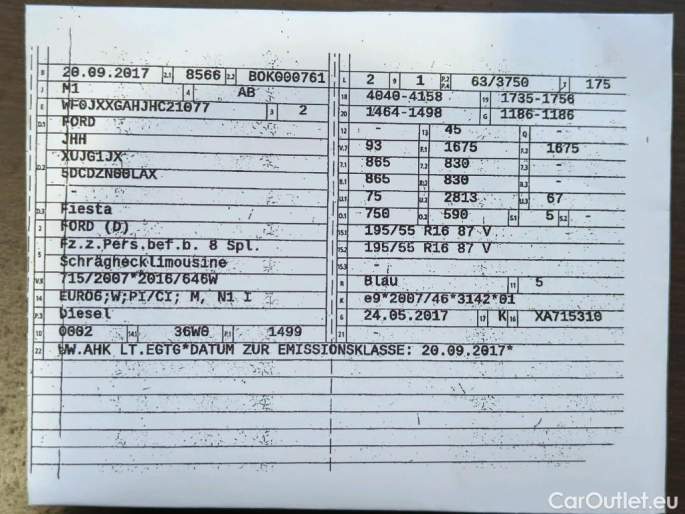 B 20.09.2017 2.1 8566 2.2 BOK000761
J M1 4 AB
E WF0JXXGAHJHC21077 3 2
D.1 FORD
JHH
D.2 XUJG1JX
5DCDZN00LAX
-
D.3 Fiesta
2 FORD (D)
5 Fz.z.Pers.bef.b. 8 Spl.
Schräghecklimousine
V.9 715/2007*2016/646W
14 EURO6;W;PI/CI; M, N1 I
P.3 Diesel
10 0002 14.1 36W0 P.1 1499
22 WW.AHK LT.EGTG*DATUM ZUR EMISSIONSKLASSE: 20.09.2017*
L 2 9 1 P.2 P.4 63/3750 T 175
18 4040-4158 19 1735-1756
20 1464-1498 G 1186-1186
12 - 13 45 Q -
V.7 93 F.1 1675 F.2 1675
7.1 865 7.2 830 7.3 -
8.1 865 8.2 830 8.3 -
U.1 75 U.2 2813 U.3 67
O.1 750 O.2 590 S.1 5 S.2 -
15.1 195/55 R16 87 V
15.2 195/55 R16 87 V
15.3 -
R Blau 11 5
K e9*2007/46*3142*01
6 24.05.2017 17 K 16 XA715310
21
CarOutlet.eu